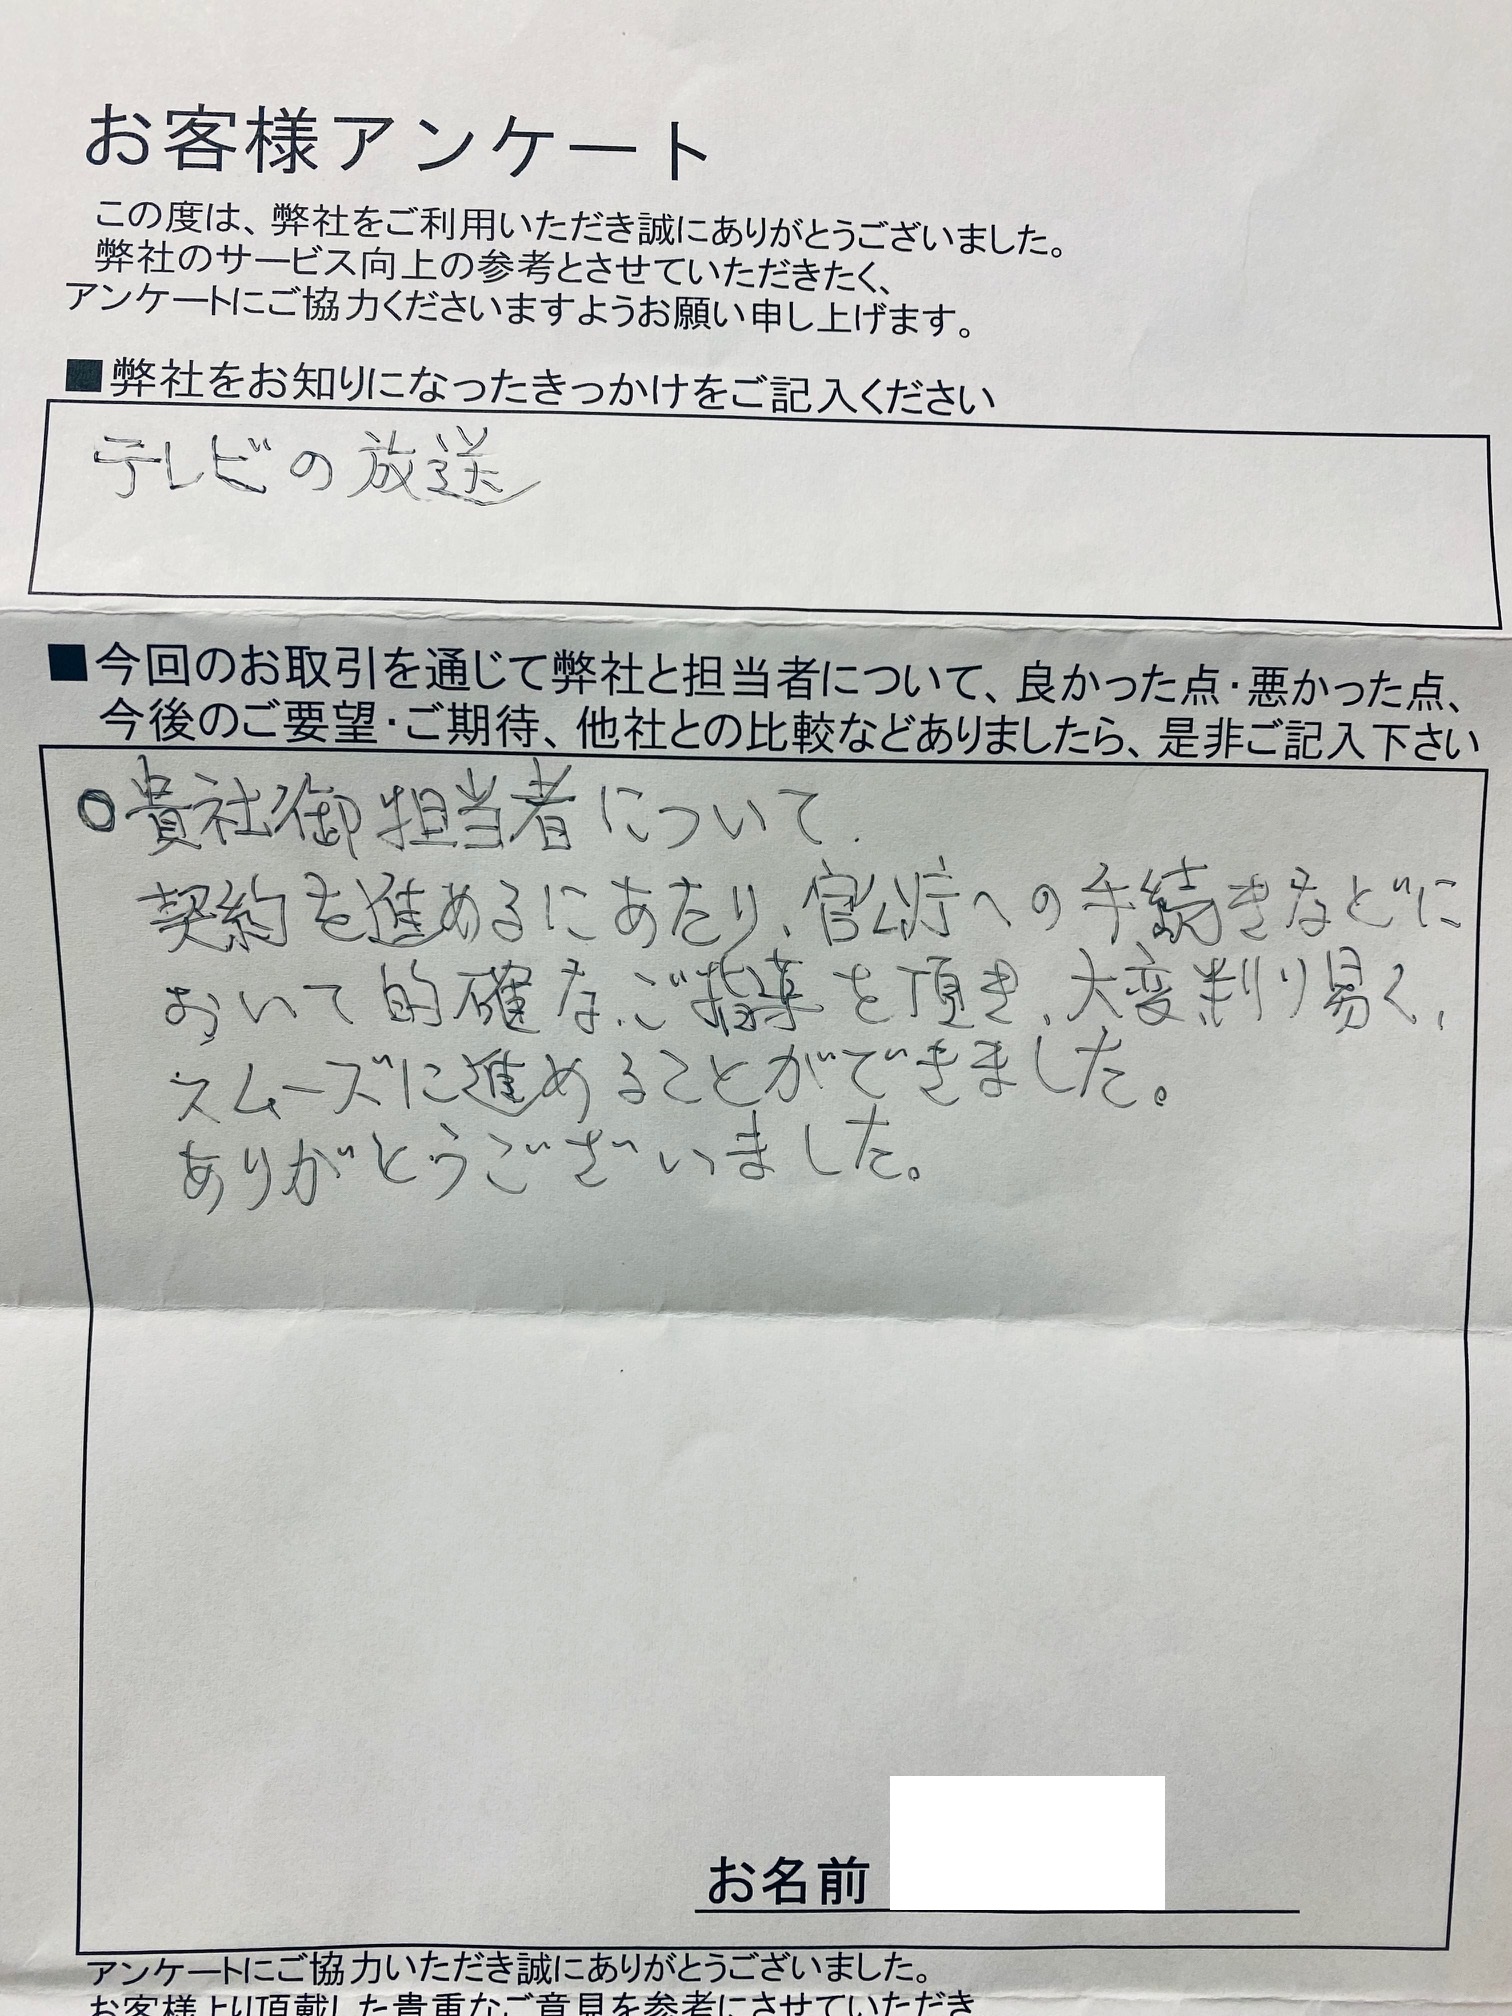 お客様アンケート
この度は、弊社をご利用いただき誠にありがとうございました。
弊社のサービス向上の参考とさせていただきたく、
アンケートにご協力くださいますようお願い申し上げます。
■弊社をお知りになったきっかけをご記入ください
テレビの放送
■今回のお取引を通じて弊社と担当者について、良かった点・悪かった点、
今後のご要望・ご期待、他社との比較などありましたら、是非ご記入下さい
○貴社御担当者について.
契約を進めるにあたり、官公庁への手続きなどに
おいて的確なご指導を頂き、大変判り易く、
スムーズに進めることができました。
ありがとうございました。
お名前
アンケートにご協力いただき誠にありがとうございました。
お客様より頂戴した貴重なご意見を参考にさせていただき